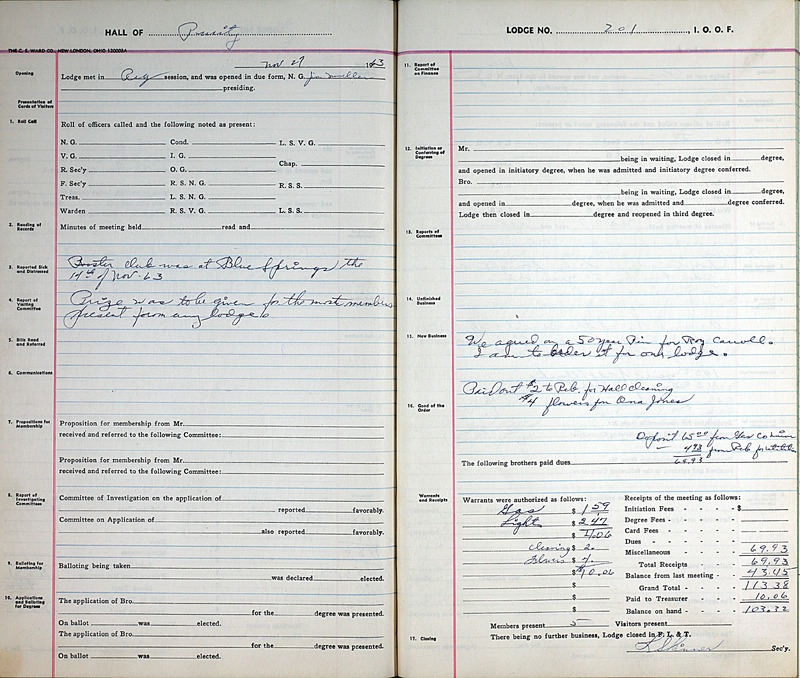 HALL OF
THE C. E. WARD CO. NEW LONDON, OHIO
Nov 27 1963
Opening
Lodge met in Reg session, and was opened in due form, N. G. Miller
presiding.
Presentation of Cards of Visitors
1. Roll Call
Roll of officers called and the following noted as present:
N. G. Cond. L. S. V. G.
V. G. I. G. Chap.
R. Sec'y O. G.
F. Sec'y R. S. N. G. R. S. S.
Treas. L. S. N. G.
Warden R. S. V. G. L. S. S.
2. Reading of Records
Minutes of meeting held read and
3. Reported Sick and Distressed
Booster club was at Blue Springs the
19th of Nov-63
4. Report of Visiting Committee
Prize was to be given for the most members
present from any lodge
5. Bills Read and Referred
6. Communications
7. Propositions for Membership
Proposition for membership from Mr.
received and referred to the following Committee:
Proposition for membership from Mr.
received and referred to the following Committee:
8. Report of Investigating Committees
Committee of Investigation on the application of
reported favorably.
Committee on Application of
also reported favorably.
9. Balloting for Membership
Balloting being taken
was declared elected.
10. Applications and Balloting for Degrees
The application of Bro.
for the degree was presented.
On ballot was elected.
The application of Bro.
for the degree was presented.
On ballot was elected.
LODGE NO. 201, I. O. O. F.
11. Report of Committee on Finance
12. Initiation or Conferring of Degrees
Mr.
being in waiting, Lodge closed in degree,
and opened in initiatory degree, when he was admitted and initiatory degree conferred.
Bro.
being in waiting, Lodge closed in degree,
and opened in degree, when he was admitted and degree conferred.
Lodge then closed in degree and reopened in third degree.
13. Reports of Committees
14. Unfinished Business
15. New Business
We agreed on a 50 year Pin for Roy Carroll.
I am to order it for our lodge.
Paid out $2 to Reb. for Hall cleaning
$4 flowers for Ona Jones
16. Good of the Order
Deposit 65.00 from Gas Co
4.93 from Reb for
69.93
The following brothers paid dues
Warrants and Receipts
Warrants were authorized as follows:
Gas $ 1.59
Light $ 2.47
$ 4.06
cleaning $ 2.
flowers $ 4.
$ 10.06
$
$
$
Receipts of the meeting as follows:
Initiation Fees - - - - - $
Degree Fees - - - - -
Card Fees - - - - -
Dues - - - - -
Miscellaneous - - - - 69.93
Total Receipts - - - 69.93
Balance from last meeting - 43.45
Grand Total - - - - 113.38
Paid to Treasurer - - - 10.06
Balance on hand - - - 103.32
Members present 5 Visitors present
17. Closing
There being no further business, Lodge closed in F. L. & T.
Skinner Sec'y.